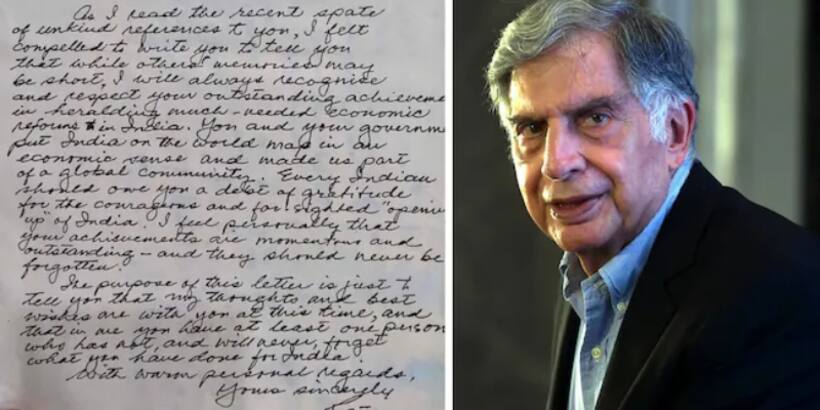 As I read the recent spate
of unkind references to you, I felt
compelled to write you to tell you
that while others' memories may
be short, I will always recognise
and respect your outstanding achieveme
in heralding much-needed economic
reforms in India. You and your governm
put India on the world map in an
economic sense and made us part
of a global community. Every Indian
should owe you a debt of gratitude
for the courageous and far sighted "openin
up" of India. I feel personally that
your achievements are momentous and
outstanding - and they should never be
forgotten.
The purpose of this letter is just to
tell you that my thoughts and best
wishes are with you at this time, and
that in me you have at least one person
who has not, and will never, forget
what you have done for India.
With warm personal regards,
Yours sincerely